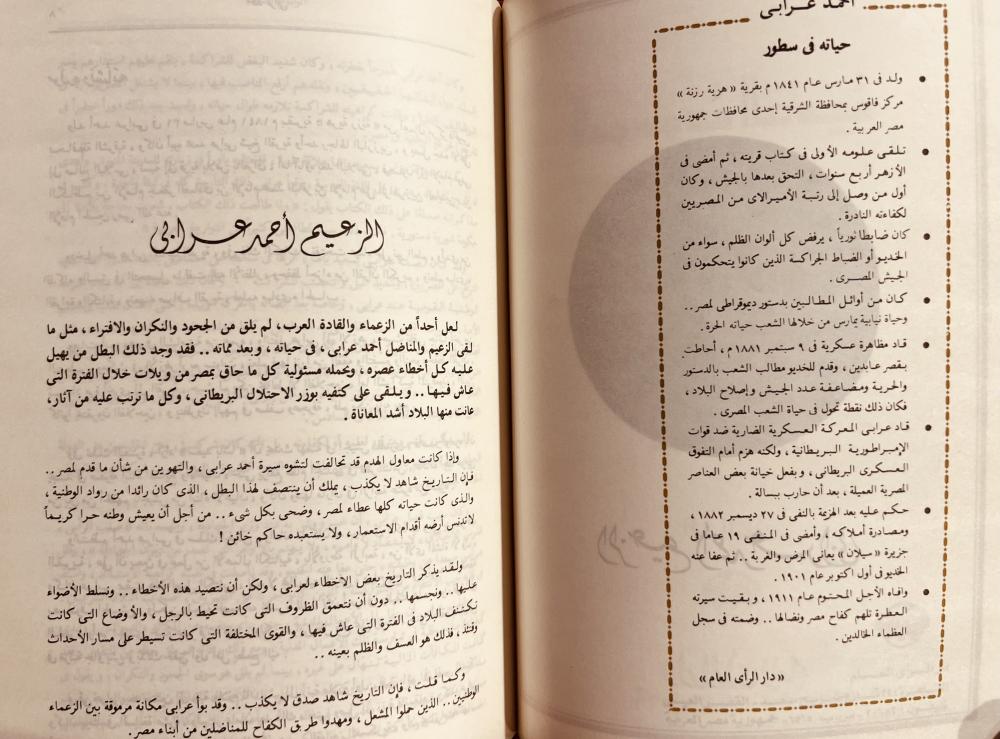 أحمد عرابى
حياته فى سطور
• ولد فى ٣١ مارس عام ١٨٤١ م بقرية « هرية رزنة »
مركز فاقوس بمحافظة الشرقية إحدى محافظات جمهورية
مصر العربية .
• تلقى علومه الأولى فى كتاب قريته ، ثم أمضى فى
الأزهر أربع سنوات ، التحق بعدها بالجيش ، وكان
أول من وصل إلى رتبة الأميرالاى من المصريين
لكفاءته النادرة .
• كان ضابطا ثورياً ، يرفض كل ألوان الظلم ، سواء من
الخديو أو الضباط الجراكسة الذين كانوا يتحكمون فى
الجيش المصرى .
• كان من أوائل المطالبين بدستور ديموقراطى لمصر ..
وحياة نيابية يمارس من خلالها الشعب حياته الحرة .
• قاد مظاهرة عسكرية فى ٩ سبتمبر ١٨٨١ م ، أحاطت
بقصر عابدين ، وقدم للخديو مطالب الشعب بالدستور
والحرية ومضاعفة عدد الجيش وإصلاح البلاد ،
فكان ذلك نقطة تحول فى حياة الشعب المصرى .
• قاد عرابى المعركة العسكرية الضارية ضد قوات
الإمبراطورية البريطانية ، ولكنه هزم أمام التفوق
العسكرى البريطانى ، وبفعل خيانة بعض العناصر
المصرية العميلة ، بعد أن حارب ببسالة .
• حكم عليه بعد الهزيمة بالنفى فى ٢٧ ديسمبر ١٨٨٢ ،
ومصادرة أملاكه ، وأمضى فى المنفى ١٩ عاما فى
جزيرة « سيلان » يعانى المرض والغربة .. ثم عفا عنه
الخديو فى أول اكتوبر عام ١٩٠١ .
• وافاه الأجل المحتوم عام ١٩١١ ، وبقيت سيرته
العطرة تلهم كفاح مصر ونضالها .. وضمته فى سجل
العظماء الخالدين .
« دار الرأى العام »
الزعيم أحمد عرابى
لعل أحداً من الزعماء والقادة العرب، لم يلق من الجحود والنكران والافتراء ، مثل ما
لقى الزعيم والمناضل أحمد عرابى ، فى حياته ، وبعد مماته .. فقد وجد ذلك البطل من يهيل
عليه كل أخطاء عصره ، ويحمله مسئولية كل ما حاق بمصر من ويلات خلال الفترة التى
عاش فيها .. ويلقى على كتفيه بوزر الاحتلال البريطانى ، وكل ما ترتب عليه من آثار،
عانت منها البلاد أشد المعاناة .
وإذا كانت معاول الهدم قد تحالفت لتشوه سيرة أحمد عرابى ، والتهوين من شأن ما قدم لمصر ..
فإن التاريخ شاهد لا يكذب ، يملك أن ينتصف لهذا البطل ، الذى كان رائدا من رواد الوطنية ،
والذى كانت حياته كلها عطاء لمصر ، وضحى بكل شىء .. من أجل أن يعيش وطنه حرا كريماً
لاتدنس أرضه أقدام الاستعمار ، ولا يستعبده حاكم خائن !
ولقد يذكر التاريخ بعض الاخطاء لعرابى ، ولكن أن نتصيد هذه الأخطاء .. ونسلط الأضواء
عليها .. ونجسمها .. دون أن نتعمق الظروف التى كانت تحيط بالرجل ، والأوضاع التى كانت
تكتنف البلاد فى الفترة التى عاش فيها ، والقوى المختلفة التى كانت تسيطر على مسار الأحداث
وقتئذ ، فذلك هو العسف والظلم بعينه ..
وكما قلت ، فإن التاريخ شاهد صدق لا يكذب .. وقد بوأ عرابى مكانة مرموقة بين الزعماء
الوطنيين .. الذين حملوا المشعل ، ومهدوا طريق الكفاح للمناضلين من أبناء مصر .